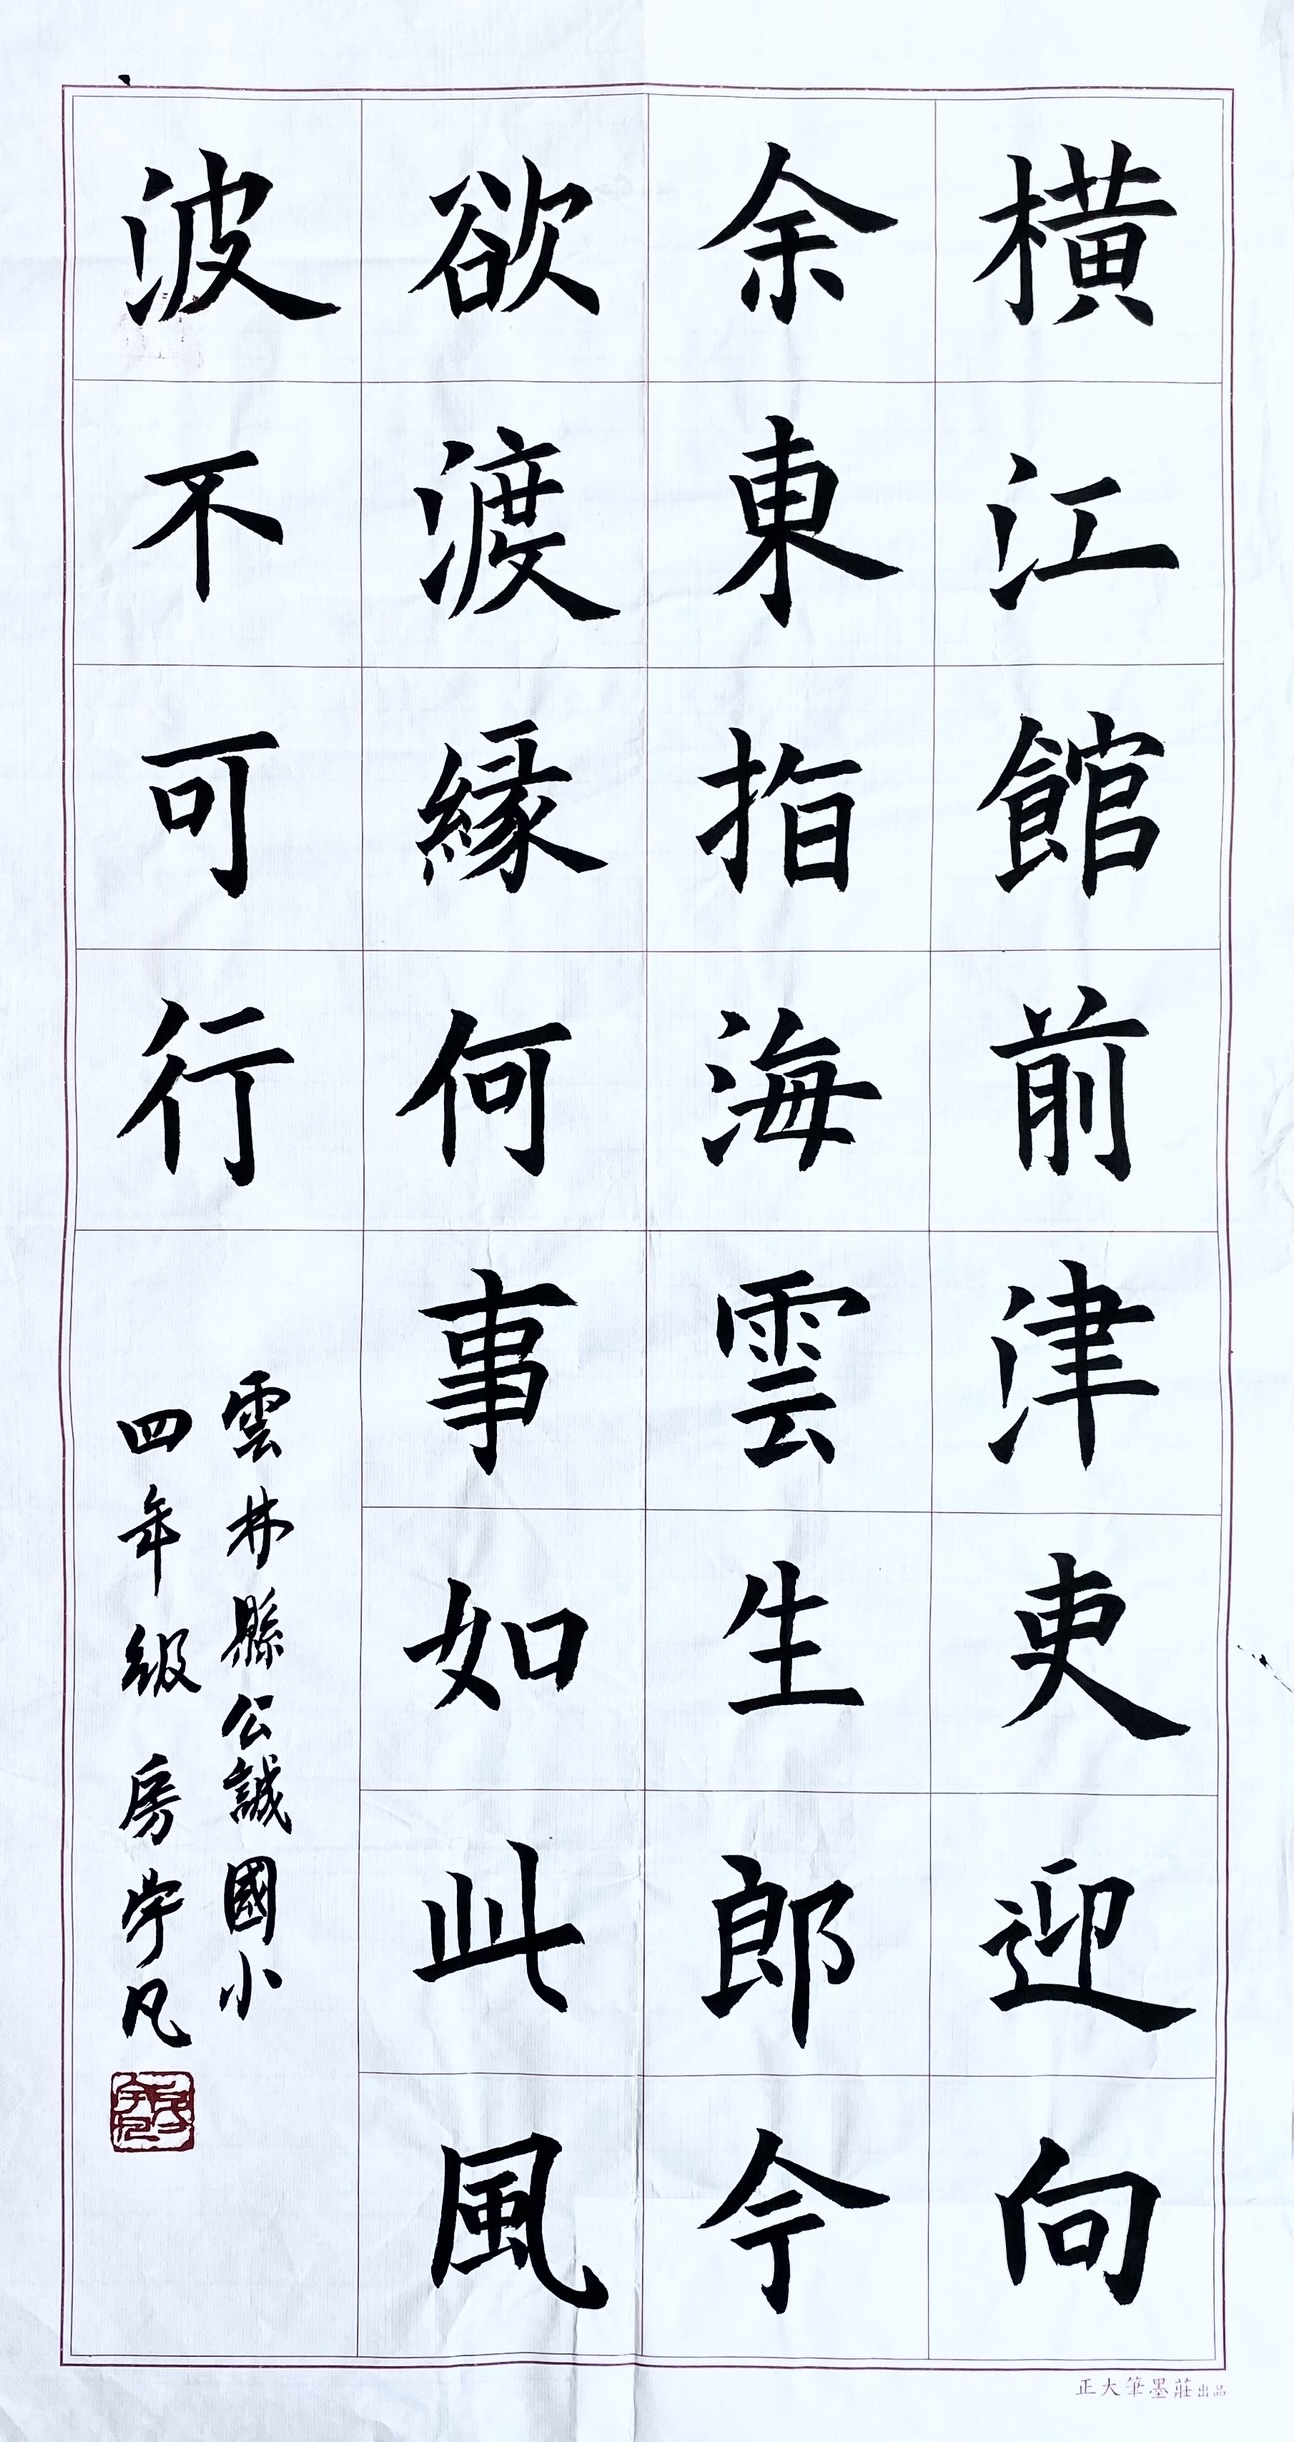 橫江館前津吏迎向
余東指海雲生郎今
欲渡緣何事如此風
波不可行
雲林縣公誠國小
四年級房宇凡
正大筆墨莊出品